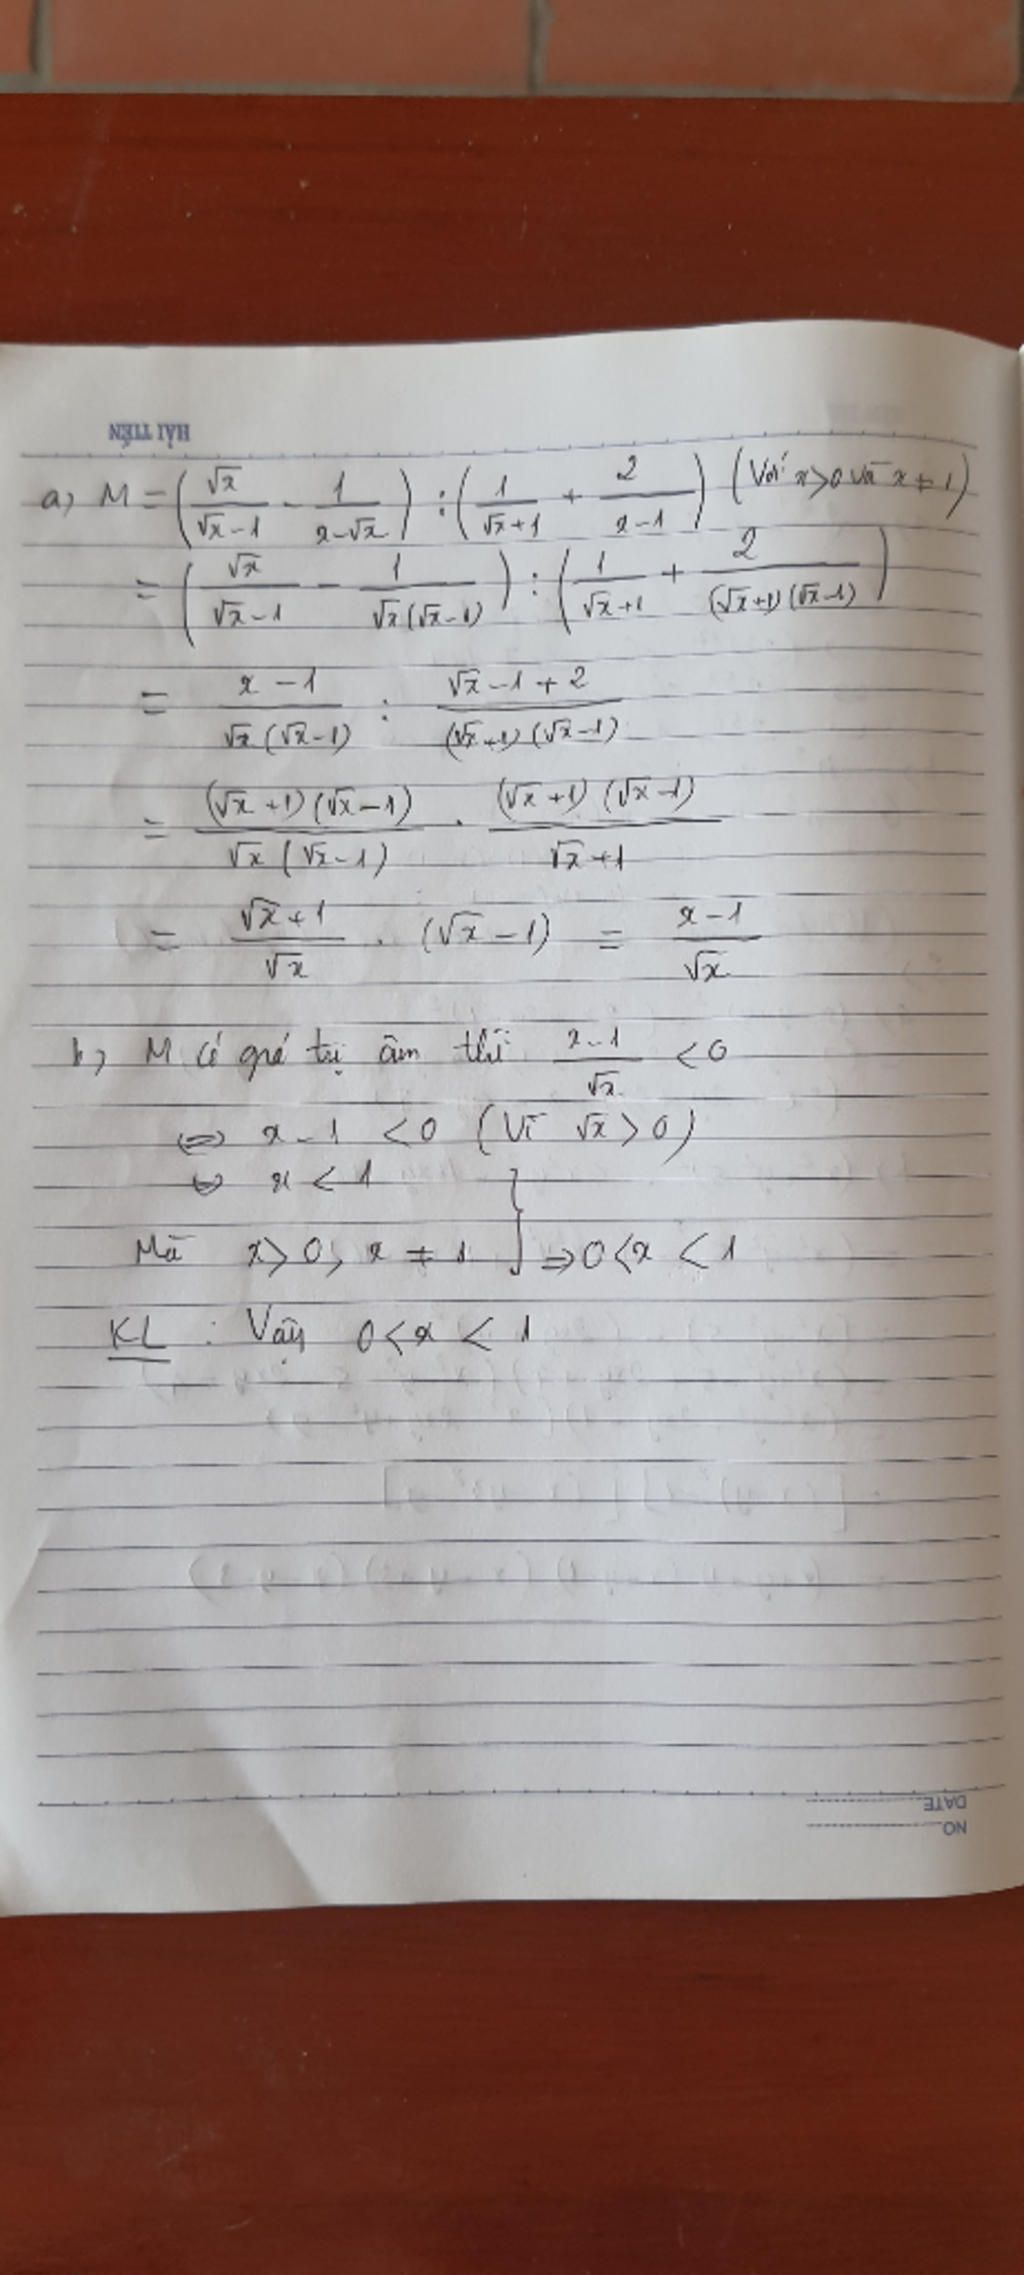 HẢI TIẾN
a, M = (√x/(√x-1) - 1/(x-√x)) : (1/(√x+1) + 2/(x-1)) (Với x>0 và x ≠ 1)
= (√x/(√x-1) - 1/(√x(√x-1))) : (1/(√x+1) + 2/((√x+1)(√x-1)))
= (x-1)/(√x(√x-1)) : (√x-1+2)/((√x+1)(√x-1))
= ((√x+1)(√x-1))/(√x(√x-1)) . ((√x+1)(√x-1))/(√x+1)
= (√x+1)/√x . (√x-1) = (x-1)/√x
b, M có giá trị âm thì (x-1)/√x < 0
⇔ x-1 < 0 (Vì √x > 0)
⇔ x < 1
Mà x>0, x ≠ 1 } ⇒ 0<x < 1
KL : Vậy 0<x < 1
DATE
NO